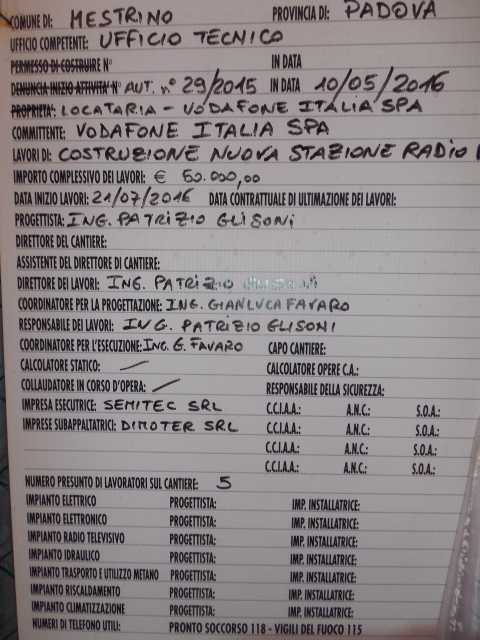 COMUNE DI: MESTRINO PROVINCIA DI: PADOVA
UFFICIO COMPETENTE: UFFICIO TECNICO
PERMESSO DI COSTRUIRE N° IN DATA
DENUNCIA INIZIO ATTIVITA' N° AUT. n° 29/2015 IN DATA 10/05/2016
PROPRIETA': LOCATARIA - VODAFONE ITALIA SPA
COMMITTENTE: VODAFONE ITALIA SPA
LAVORI DI: COSTRUZIONE NUOVA STAZIONE RADIO
IMPORTO COMPLESSIVO DEI LAVORI: € 60.000,00
DATA INIZIO LAVORI: 21/07/2016 DATA CONTRATTUALE DI ULTIMAZIONE DEI LAVORI:
PROGETTISTA: ING. PATRIZIO GLISONI
DIRETTORE DEL CANTIERE:
ASSISTENTE DEL DIRETTORE DI CANTIERE:
DIRETTORE DEI LAVORI: ING. PATRIZIO
COORDINATORE PER LA PROGETTAZIONE: ING. GIANLUCA FAVARO
RESPONSABILE DEI LAVORI: ING. PATRIZIO GLISONI
COORDINATORE PER L'ESECUZIONE: ING. G. FAVARO CAPO CANTIERE:
CALCOLATORE STATICO: — CALCOLATORE OPERE C.A.:
COLLAUDATORE IN CORSO D'OPERA: — RESPONSABILE DELLA SICUREZZA:
IMPRESA ESECUTRICE: SEMITEC SRL C.C.I.A.A.: A.N.C.: S.O.A.:
IMPRESE SUBAPPALTATRICI: DIMOTER SRL C.C.I.A.A.: A.N.C.: S.O.A.:
C.C.I.A.A.: A.N.C.: S.O.A.:
C.C.I.A.A.: A.N.C.: S.O.A.:
NUMERO PRESUNTO DI LAVORATORI SUL CANTIERE: 5
IMPIANTO ELETTRICO PROGETTISTA: IMP. INSTALLATRICE:
IMPIANTO ELETTRONICO PROGETTISTA: IMP. INSTALLATRICE:
IMPIANTO RADIO TELEVISIVO PROGETTISTA: IMP. INSTALLATRICE:
IMPIANTO IDRAULICO PROGETTISTA: IMP. INSTALLATRICE:
IMPIANTO TRASPORTO E UTILIZZO METANO PROGETTISTA: IMP. INSTALLATRICE:
IMPIANTO RISCALDAMENTO PROGETTISTA: IMP. INSTALLATRICE:
IMPIANTO CLIMATIZZAZIONE PROGETTISTA: IMP. INSTALLATRICE:
NUMERI DI TELEFONO UTILI: PRONTO SOCCORSO 118 - VIGILI DEL FUOCO 115